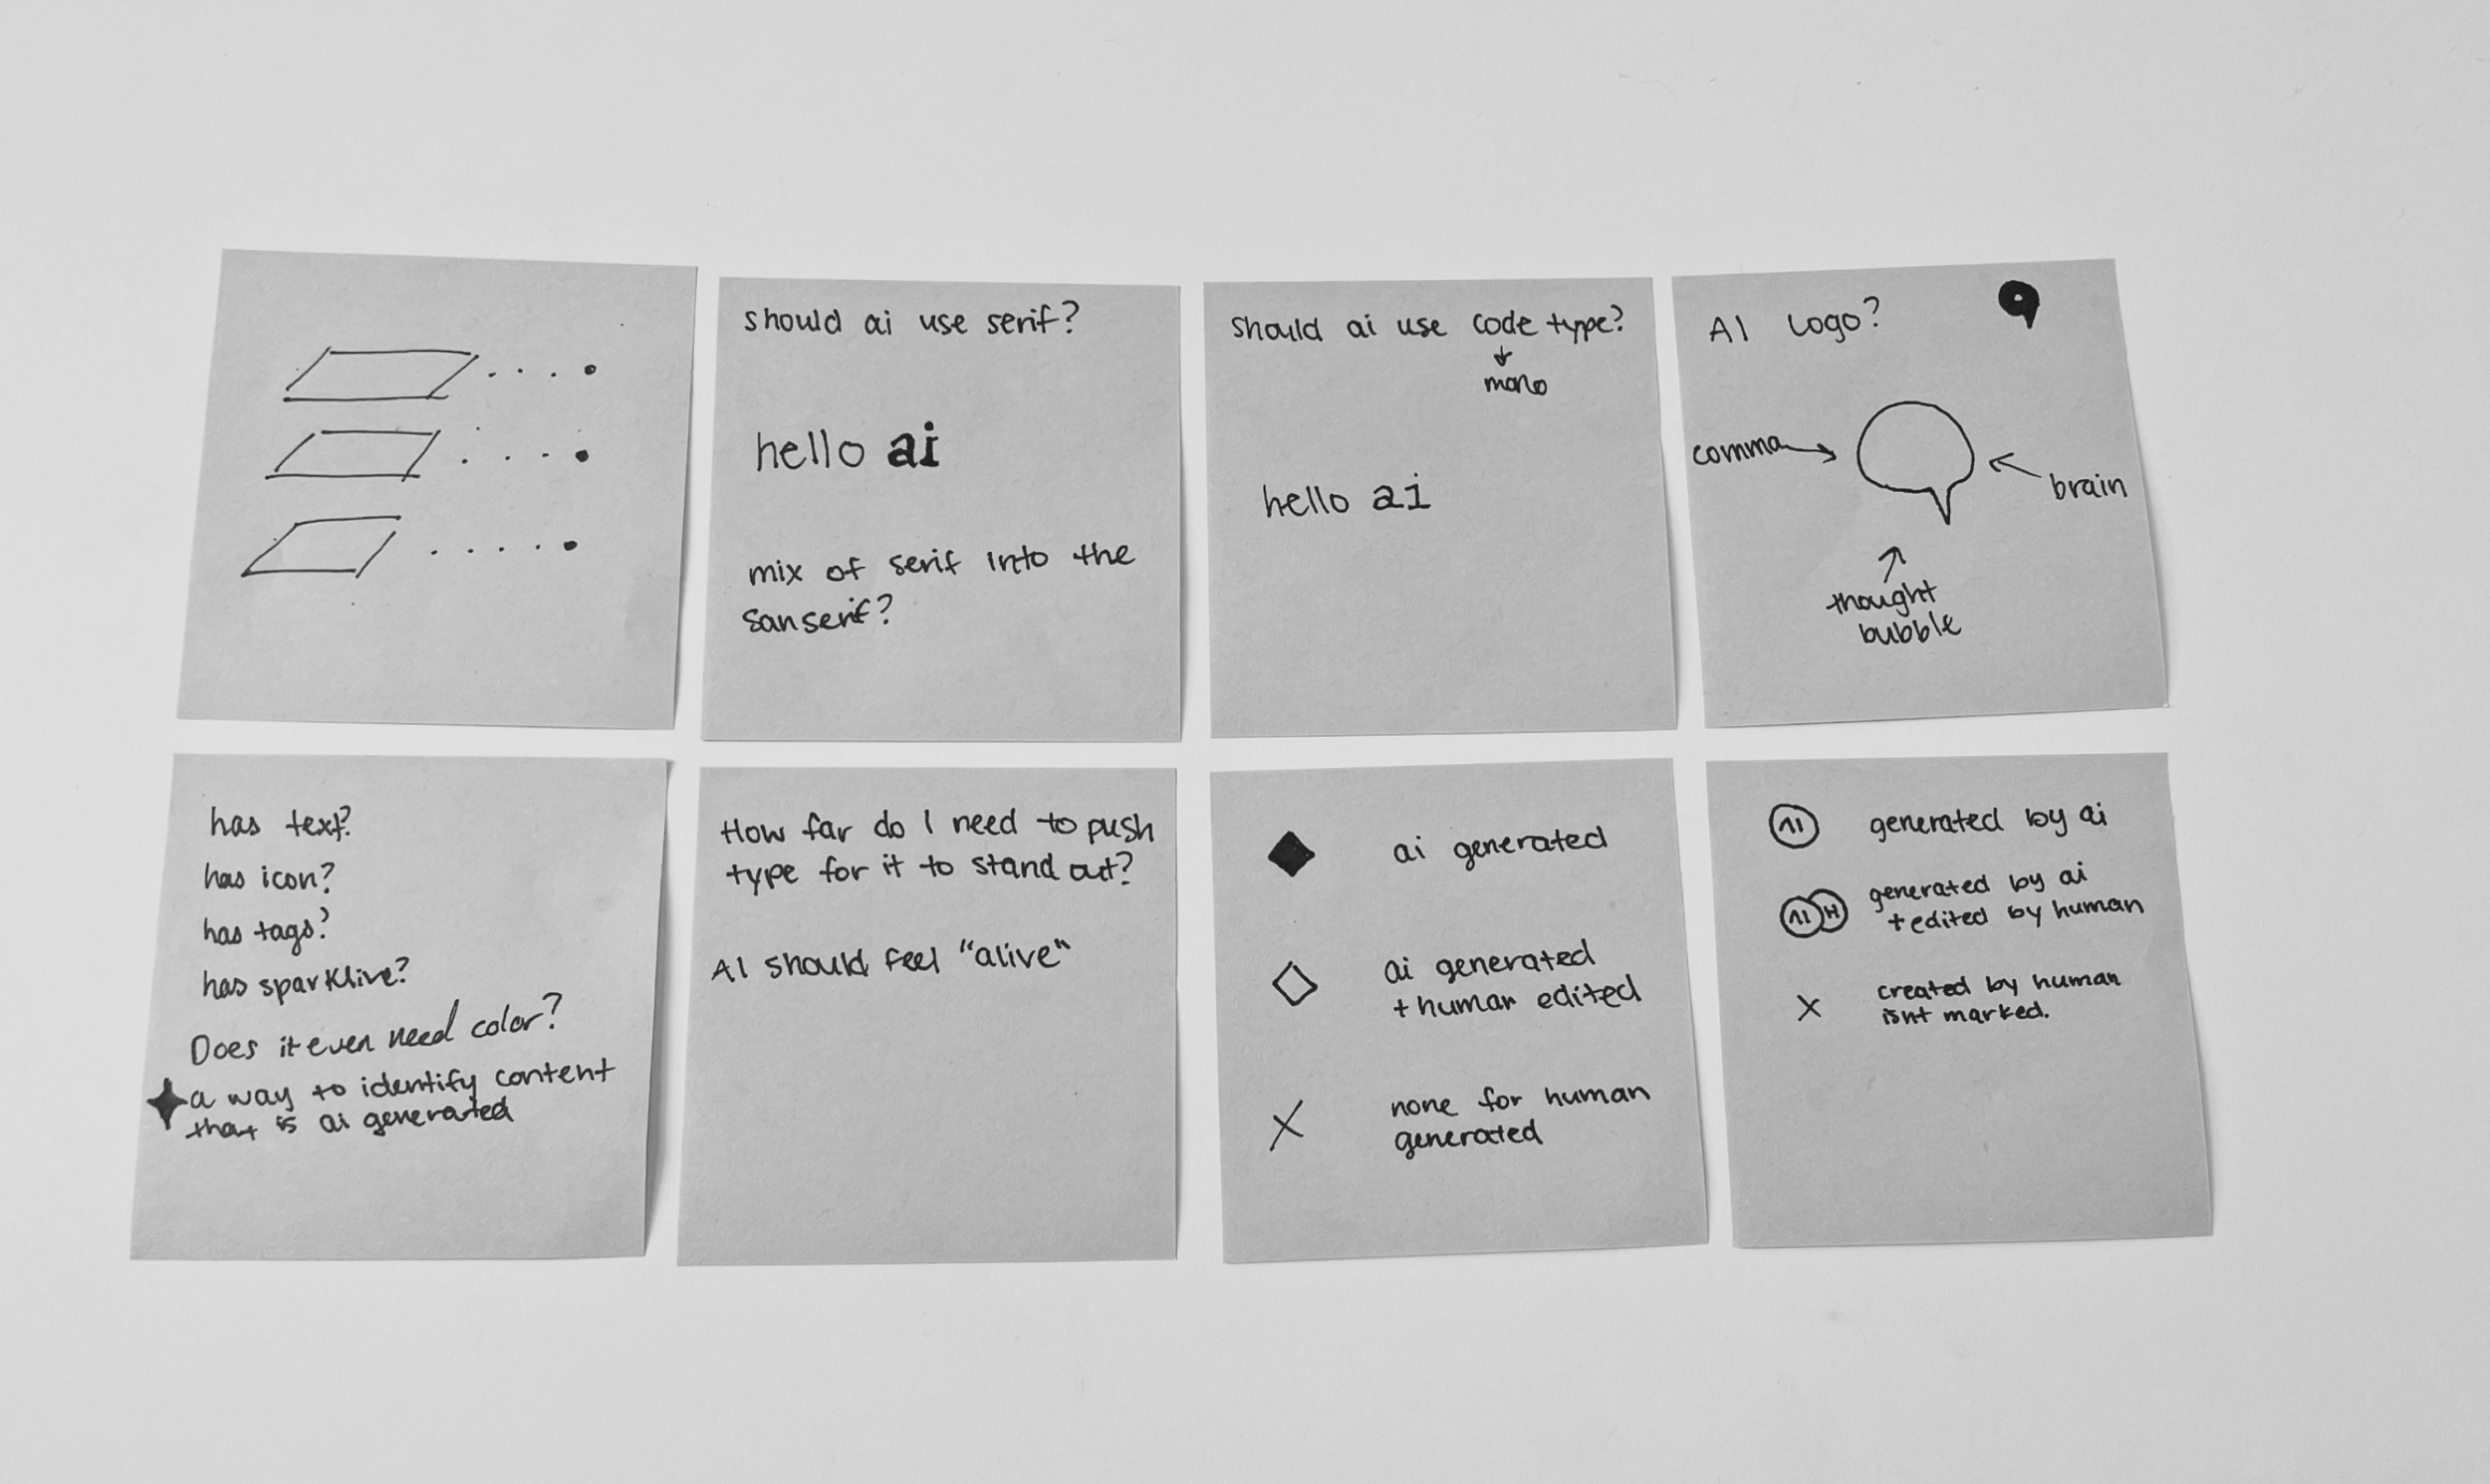 should ai use serif?
hello ai
mix of serif into the
sanserif?
should ai use code type?
mono
hello ai
AI Logo?
comma
brain
thought
bubble
has text?
has icon?
has tags?
has sparkline?
Does it even need color?
a way to identify content
that is ai generated
How far do I need to push
type for it to stand out?
AI should feel "alive"
ai generated
ai generated
+ human edited
none for human
generated
AI generated by ai
AI H generated by ai
+ edited by human
X created by human
isnt marked.